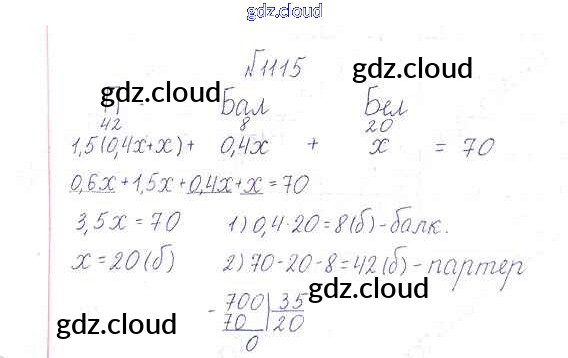 gdz.cloud
№1115
gdz.cloud
gdz.cloud
П Бал Бел
42 8 20
1,5(0,4x+x)+ 0,4x + x = 70
0,6x+1,5x+0,4x+x=70
gdz.cloud gdz.cloud
3,5x=70 1) 0,4·20=8(б)-балк.
x=20(б) 2) 70-20-8=42(б)-партер
gdz.cloud
- 700 35
70 20
0
gdz.cloud
gdz.cloud